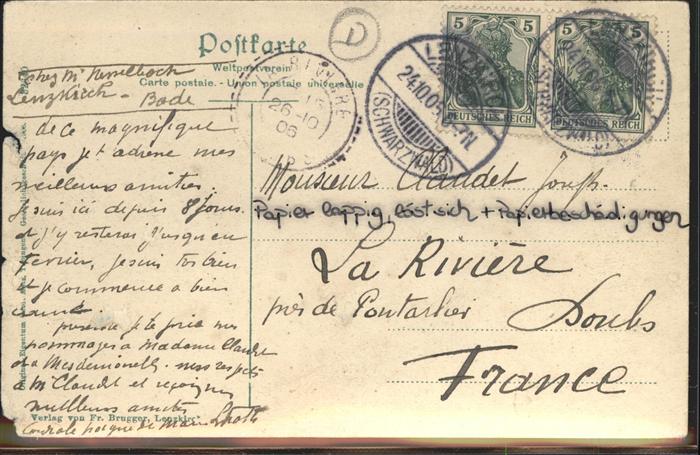 D
Postkarte
Weltpostverein
Carte postale. - Union postale universelle
5 5
5 5
DEUTSCHES REICH
DEUTSCHES REICH
LENZKIRCH
24.10.06
(SCHWARZWALD)
26-10
06
chez Mr
Lenzkirch -
Bade
de ce magnifique
pays je t'adresse mes
meilleures amitiés
Je suis ici depuis 8 jours.
et j'y resterai jusqu'en
février, je suis très bien
et je commence a bien
présente je te prie mes
hommages a Madame Claudet
et a Mesdemoiselles mes respects
a Mr Claudet et reçois mes
meilleures amitiés
Monsieur Claudet Josph.
Papier lappig, löst sich + Papierbeschädigungen
La Rivière
près de Pontarlier
Doubs
France
Verlag von Fr. Brugger, Lenzkirch